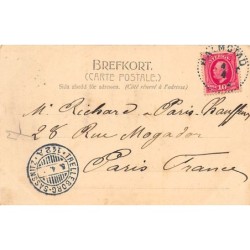 BREFKORT.
(CARTE POSTALE.)
Sida direkt för adressen. (Côté réservé à l'adresse.)
MALMÖ
10
Mr Richard - Paris-Chauffeur
28 Rue Mogador
Paris France
TRELLEBORG-SASSNITZ